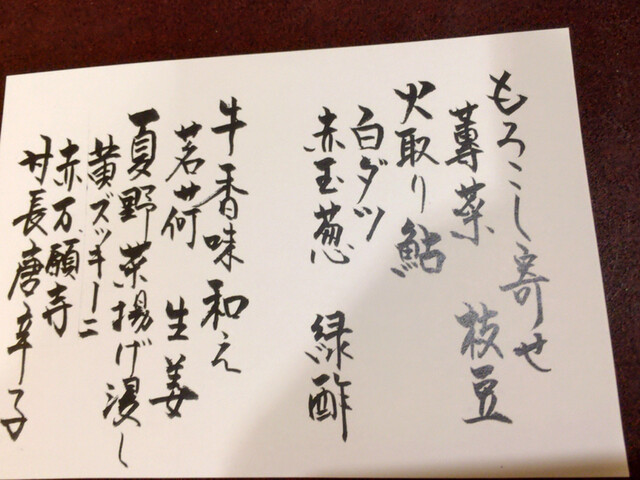 もろこし寄せ
蓴菜　枝豆
火取り鮎
白ダツ
赤玉葱　緑酢
牛香味和え
茗荷　生姜
夏野菜揚げ浸し
黄ズッキーニ
赤万願寺
甘長唐辛子